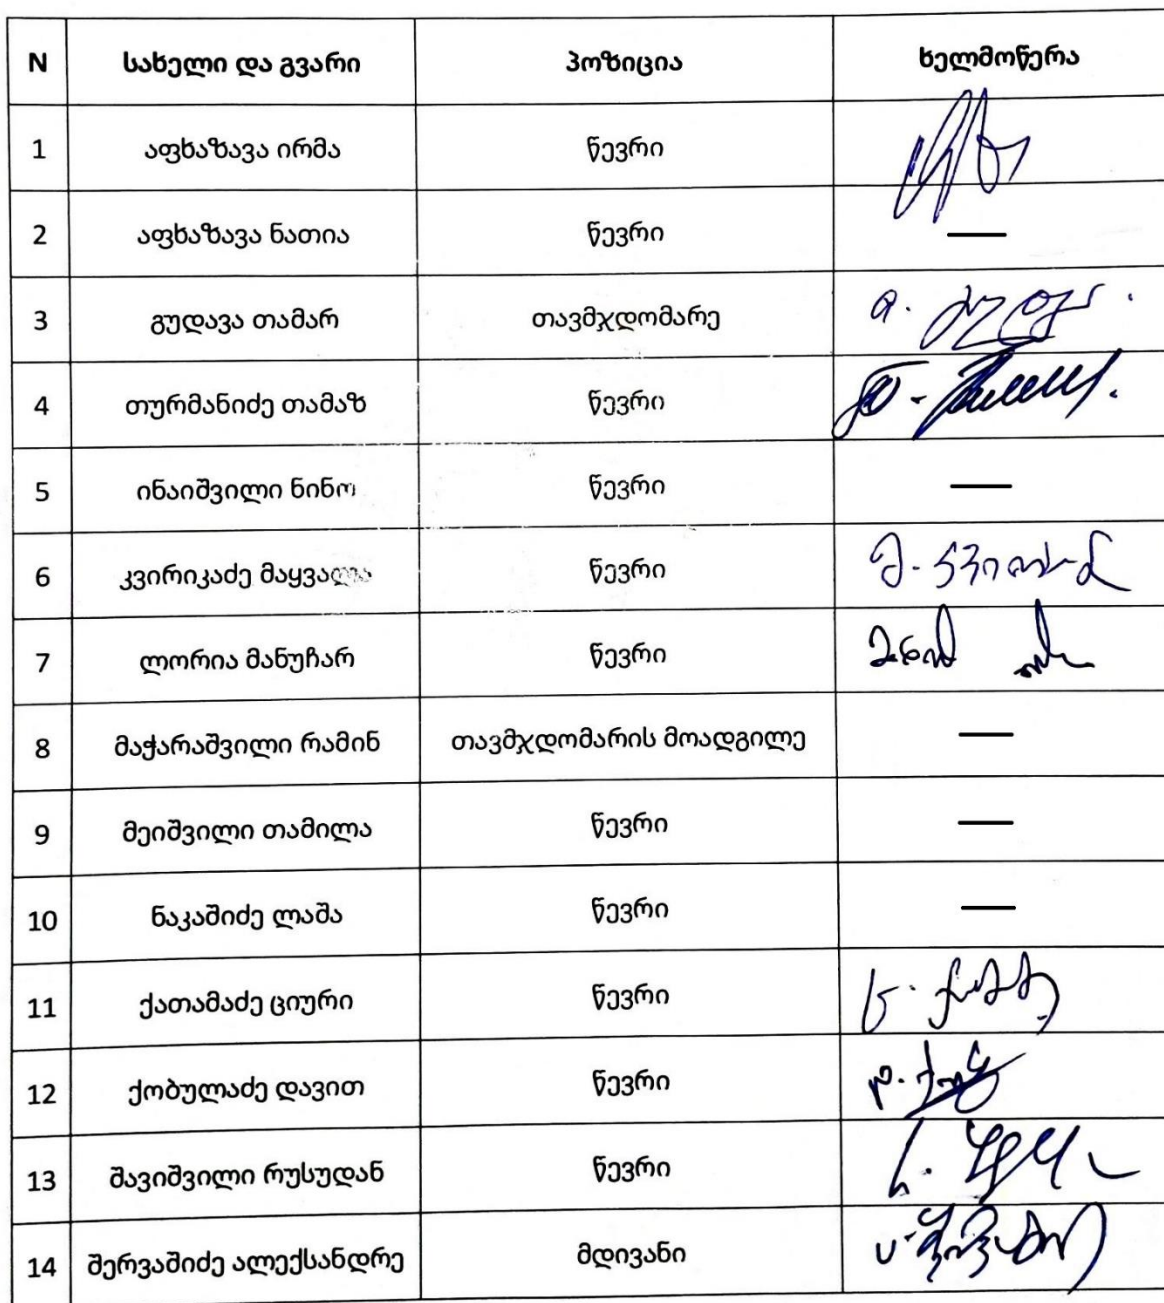 N სახელი და გვარი პოზიცია ხელმოწერა
1 აფხაზავა ირმა წევრი
2 აფხაზავა ნათია წევრი —
3 გუდავა თამარ თავმჯდომარე
4 თურმანიძე თამაზ წევრი
5 ინაიშვილი ნინო წევრი —
6 კვირიკაძე მაყვალა წევრი
7 ლორია მანუჩარ წევრი
8 მაჭარაშვილი რამინ თავმჯდომარის მოადგილე —
9 მეიშვილი თამილა წევრი —
10 ნაკაშიძე ლაშა წევრი —
11 ქათამაძე ციური წევრი
12 ქობულაძე დავით წევრი
13 შავიშვილი რუსუდან წევრი
14 შერვაშიძე ალექსანდრე მდივანი